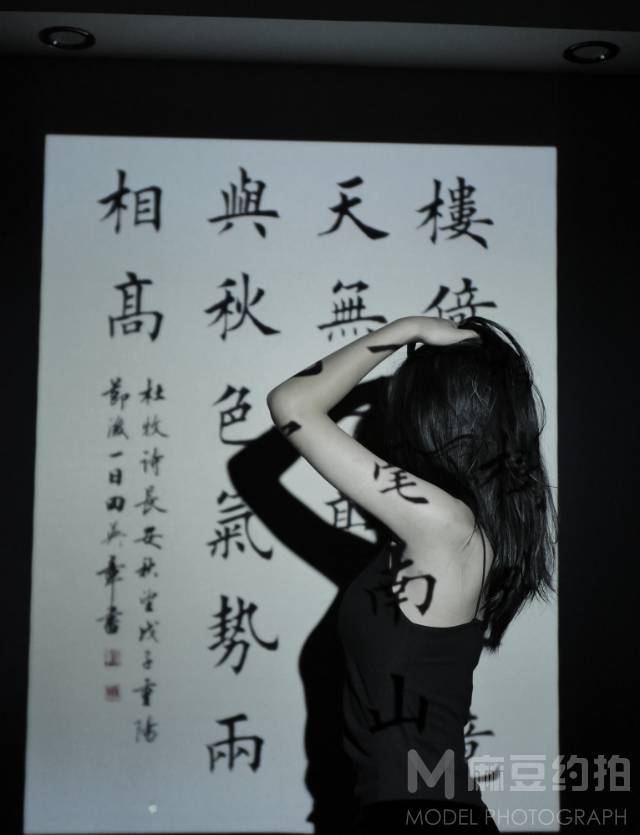 樓倚
天無一毫南山
與秋色氣勢兩
相髙
杜牧詩長安秋望戊子重陽
節後一日田英章書
M麻豆约拍
MODEL PHOTOGRAPH